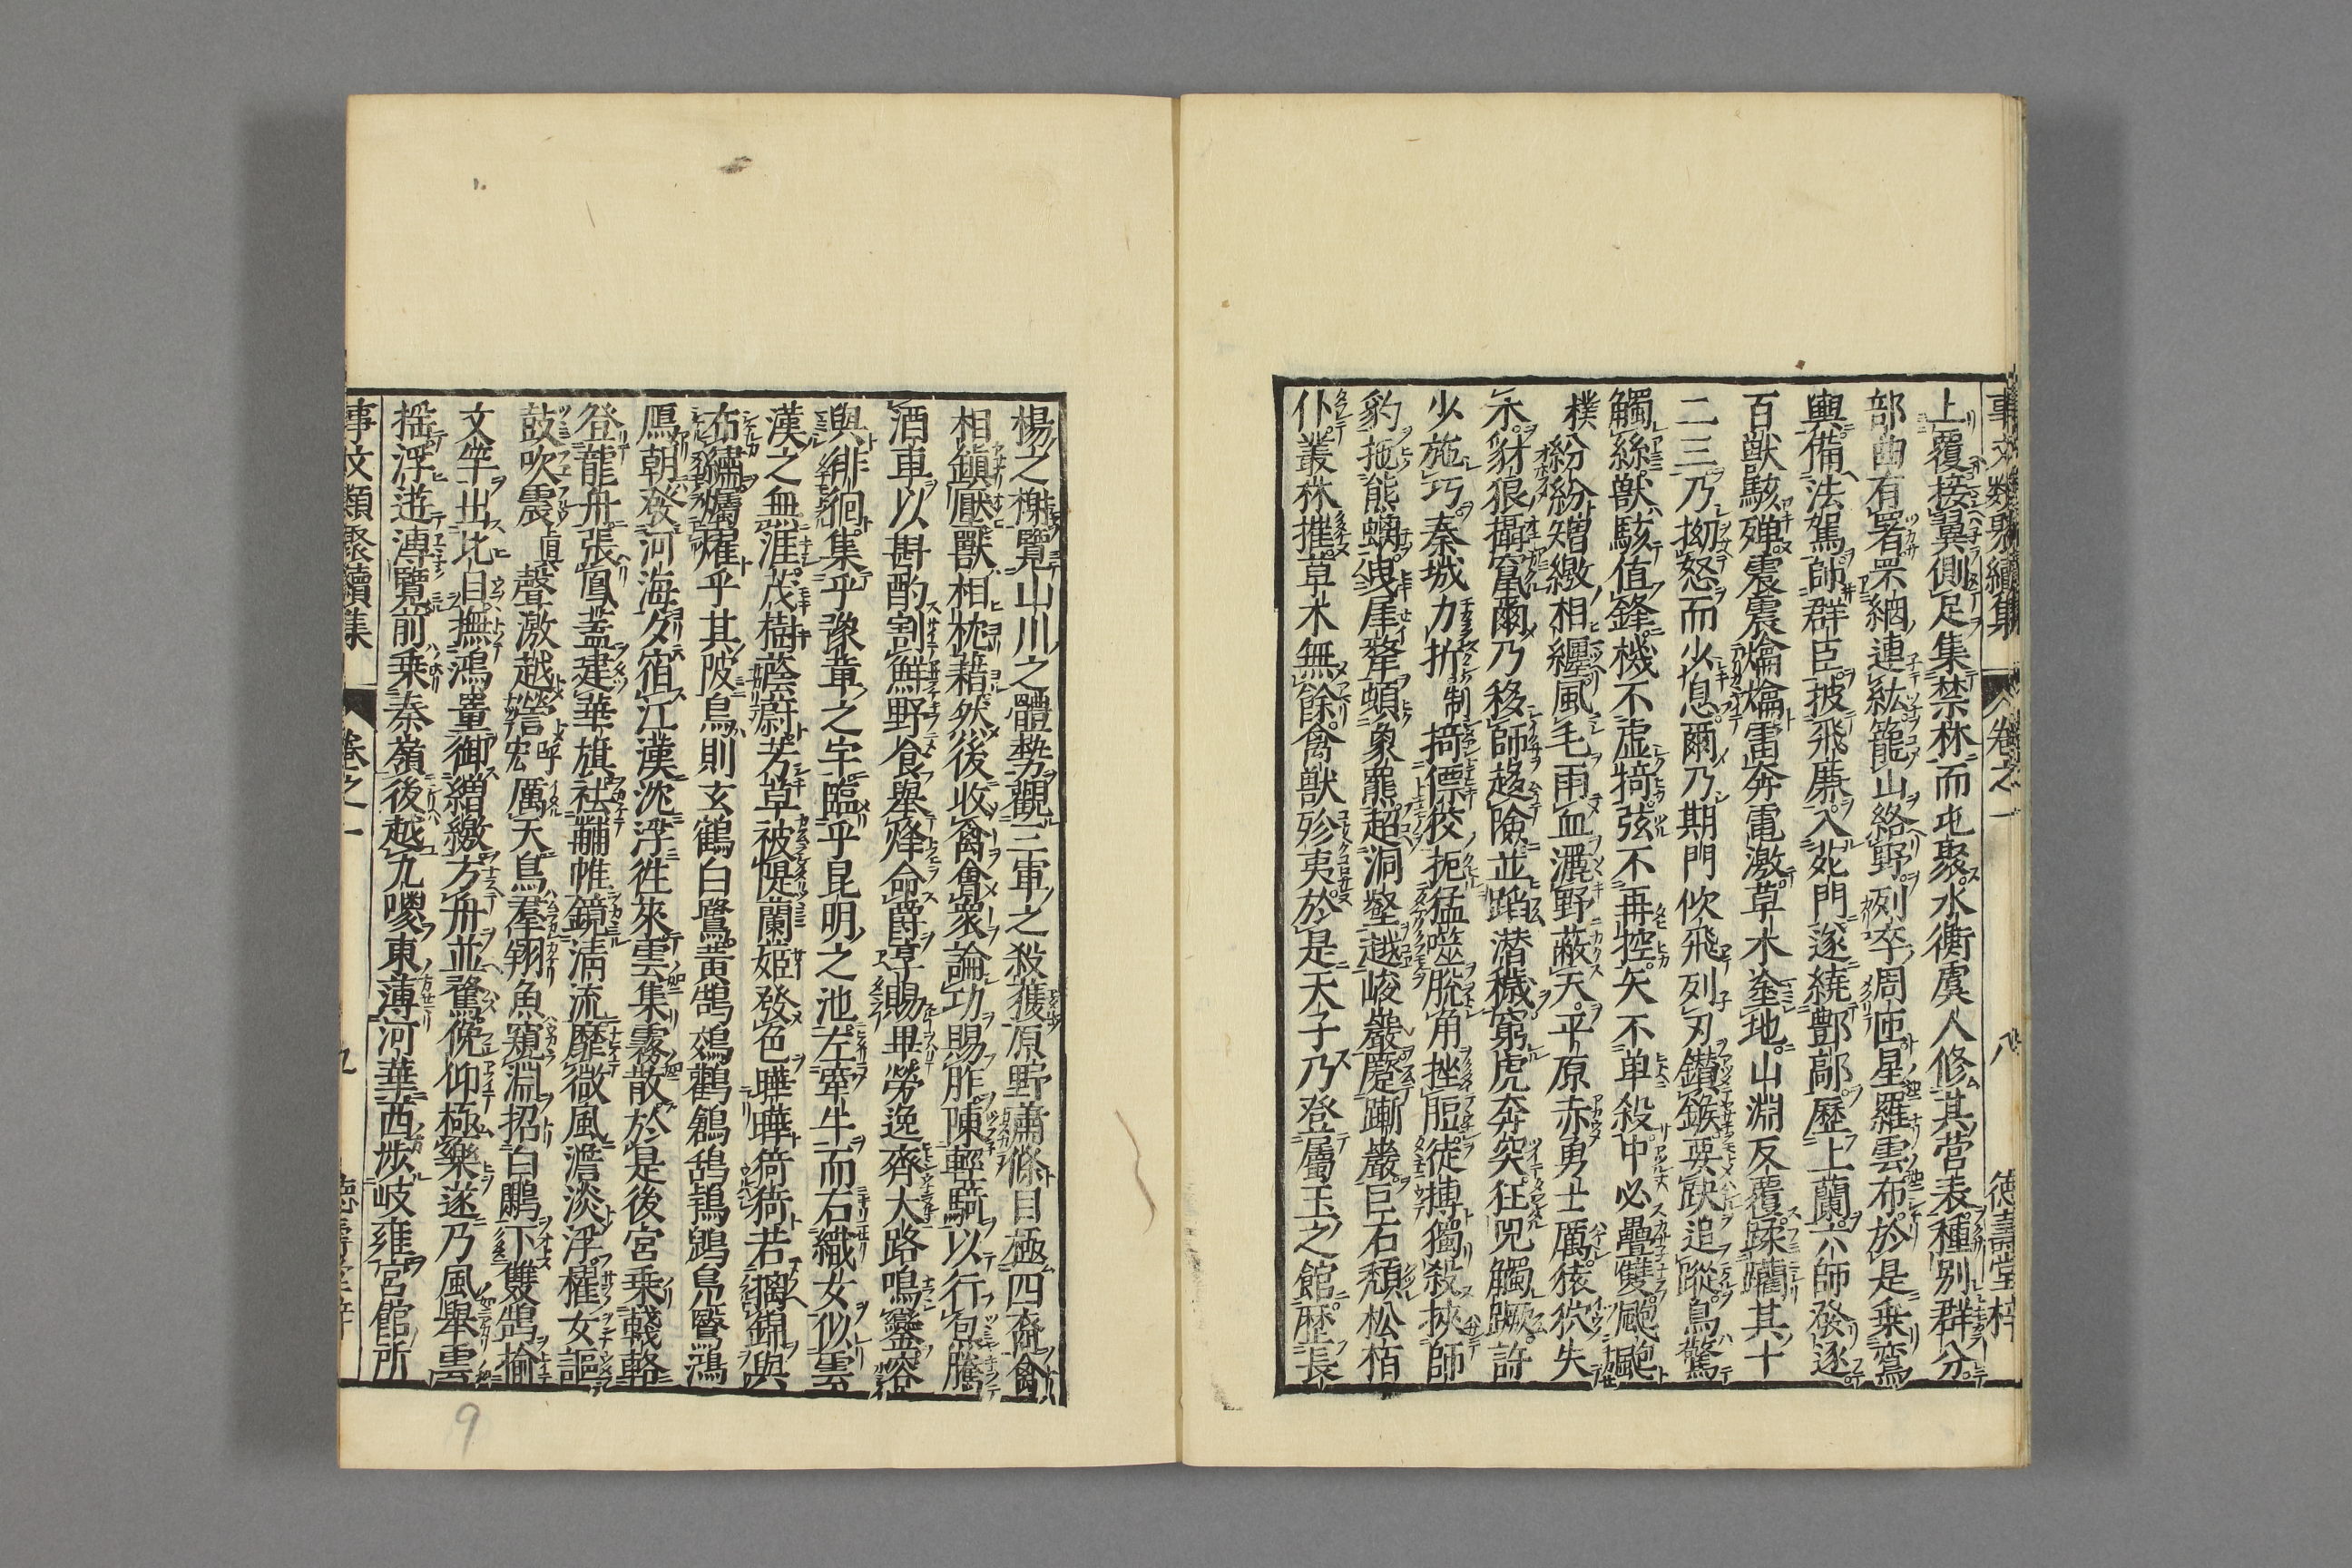 事文類聚續集 卷之一 八 德壽堂梓
上覆接翼側足集禁林而屯聚水衡虞人修其营表種别群分
部曲有署罘網連紘籠山絡野列卒周匝星羅雲布於是乗鸞
輿備法駕師群臣披飛廉入苑門遂繞酆鄗歷上蘭六師發逐
百獣駭殫震震爚爚雷奔電激草木塗地山淵反覆蹂躪其十
二三乃拗怒而少息爾乃期門佽飛列刃鑽鍭要趹追蹤鳥驚
觸絲獣駭值鋒機不虚掎弦不再控矢不单殺中必疊雙颮颮
樸紛紛矰繳相纒風毛雨血灑野蔽天平原赤勇士厲猿狖失
木豺狼攝竄爾乃移師趍險並蹈潜穢窮虎奔突狂兕觸蹶許
少施巧秦城力折制掎僄狡扼猛噬脱角挫脰徒搏獨殺挾師
豹拖熊螭洩犀犛頓象羆超洞壑越峻巖蹷嶃巖巨石頽松栢
仆叢林摧草木無餘禽獣殄夷於是天子乃登屬玉之館歷長
楊之榭覽山川之體勢觀三軍之殺獲原野蕭條目極四裔禽
相鎮壓獸相枕藉然後收禽會衆論功賜胙陳輕騎以行炰騰
酒車以斟酌割鮮野食舉烽命爵享賜畢勞逸齊大路鳴鑾容
與徘徊集乎豫章之宇臨乎昆明之池左牽牛而右織女似雲
漢之無涯茂樹蔭蔚芳草被隄蘭茝發色曄曄猗猗若摛錦與
布繡爥燿乎其陂鳥則玄鶴白鷺黄鵠鵁鸛鶬鴰鴇鶂鳬鷖鴻
鴈朝發河海夕宿江漢沈浮徃來雲集霧散於是後宮乗輚輅
登龍舟張鳳蓋建華旗袪黼帷鏡清流靡微風澹淡浮櫂女謳
鼓吹震聲激越謍厲天鳥羣翔魚窺淵招白鷴下雙鵠揄
文竿出比目撫鴻罿御繒繳方舟並騖俛仰極樂遂乃風舉雲
揺浮遊溥覽前乗秦嶺後越九嵕東薄河華西涉岐雍宮館所
事文類聚續集 卷之一 九
9